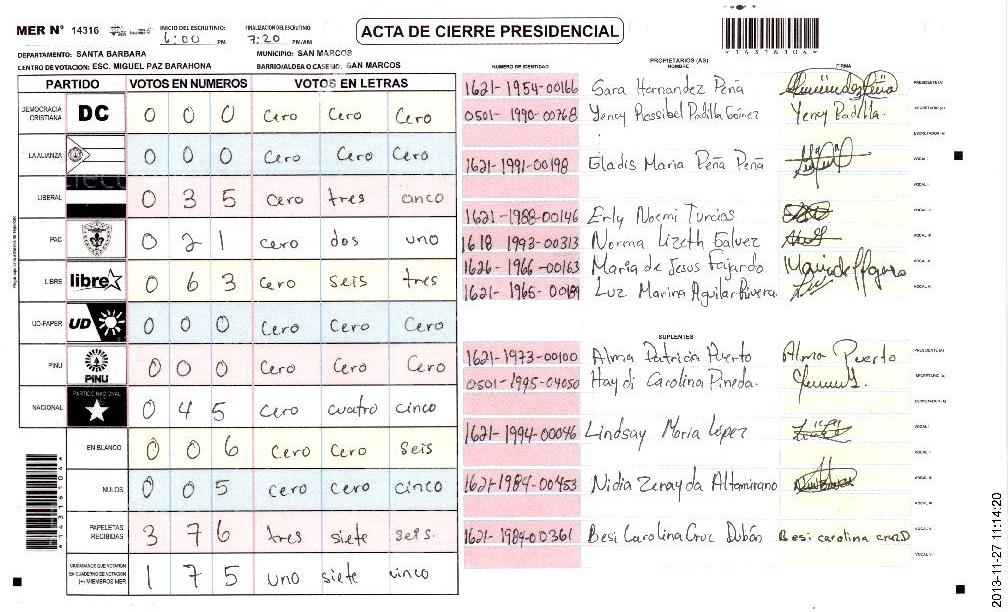 MER N° 14316
INICIO DEL ESCRUTINIO: 6:00 PM
FINALIZACION DEL ESCRUTINIO: 7:20 PM/AM
ACTA DE CIERRE PRESIDENCIAL
*14316104*
DEPARTAMENTO: SANTA BARBARA
MUNICIPIO: SAN MARCOS
CENTRO DE VOTACION: ESC. MIGUEL PAZ BARAHONA
BARRIO/ALDEA O CASERIO: SAN MARCOS
PARTIDO VOTOS EN NUMEROS VOTOS EN LETRAS
DEMOCRACIA CRISTIANA DC 0 0 0 Cero Cero Cero
LA ALIANZA 0 0 0 Cero Cero Cero
LIBERAL 0 3 5 Cero tres cinco
PAC 0 2 1 cero dos uno
LIBRE libre 0 6 3 cero seis tres
UD-FAPER UD 0 0 0 Cero Cero Cero
PINU PINU 0 0 0 Cero Cero Cero
NACIONAL PARTIDO NACIONAL 0 4 5 cero cuatro cinco
EN BLANCO 0 0 6 Cero Cero seis
NULOS 0 0 5 cero cero cinco
PAPELETAS RECIBIDAS 3 7 6 tres siete seis.
CIUDADANOS QUE VOTARON EN CUADERNO DE VOTACION (+) MIEMBROS MER 1 7 5 uno siete cinco
*14316104*
NUMERO DE IDENTIDAD
PROPIETARIOS (AS)
NOMBRE
FIRMA
1621-1954-00166 Sara Hernandez Peña PRESIDENTE (A)
0501-1990-00768 Yency Rossibel Padilla Gómez Yency Padilla. SECRETARIO (A)
ESCRUTADOR (A)
1621-1991-00198 Gladis Maria Peña Peña VOCAL I
VOCAL II
1621-1988-00146 Erly Noemi Turcios
1618 1993-00313 Norma Lizeth Galvez VOCAL IV
1626-1966-00163 Maria de Jesus Fajardo VOCAL V
1621-1965-00189 Luz Marina Aguilar Rivera VOCAL VI
SUPLENTES
1621-1973-00100 Alma Patricia Puerto Alma Puerto PRESIDENTE (A)
0501-1995-04050 Haydi Carolina Pineda. SECRETARIO (A)
ESCRUTADOR (A)
1621-1994-00046 Lindsay Maria López VOCAL I
VOCAL II
1621-1984-00453 Nidia Zenayda Altamirano VOCAL III
VOCAL IV
1621-1984-00361 Besi Carolina Cruz Dubón Besi carolina cruz D VOCAL V
VOCAL VI
2013-11-27 11:14:20